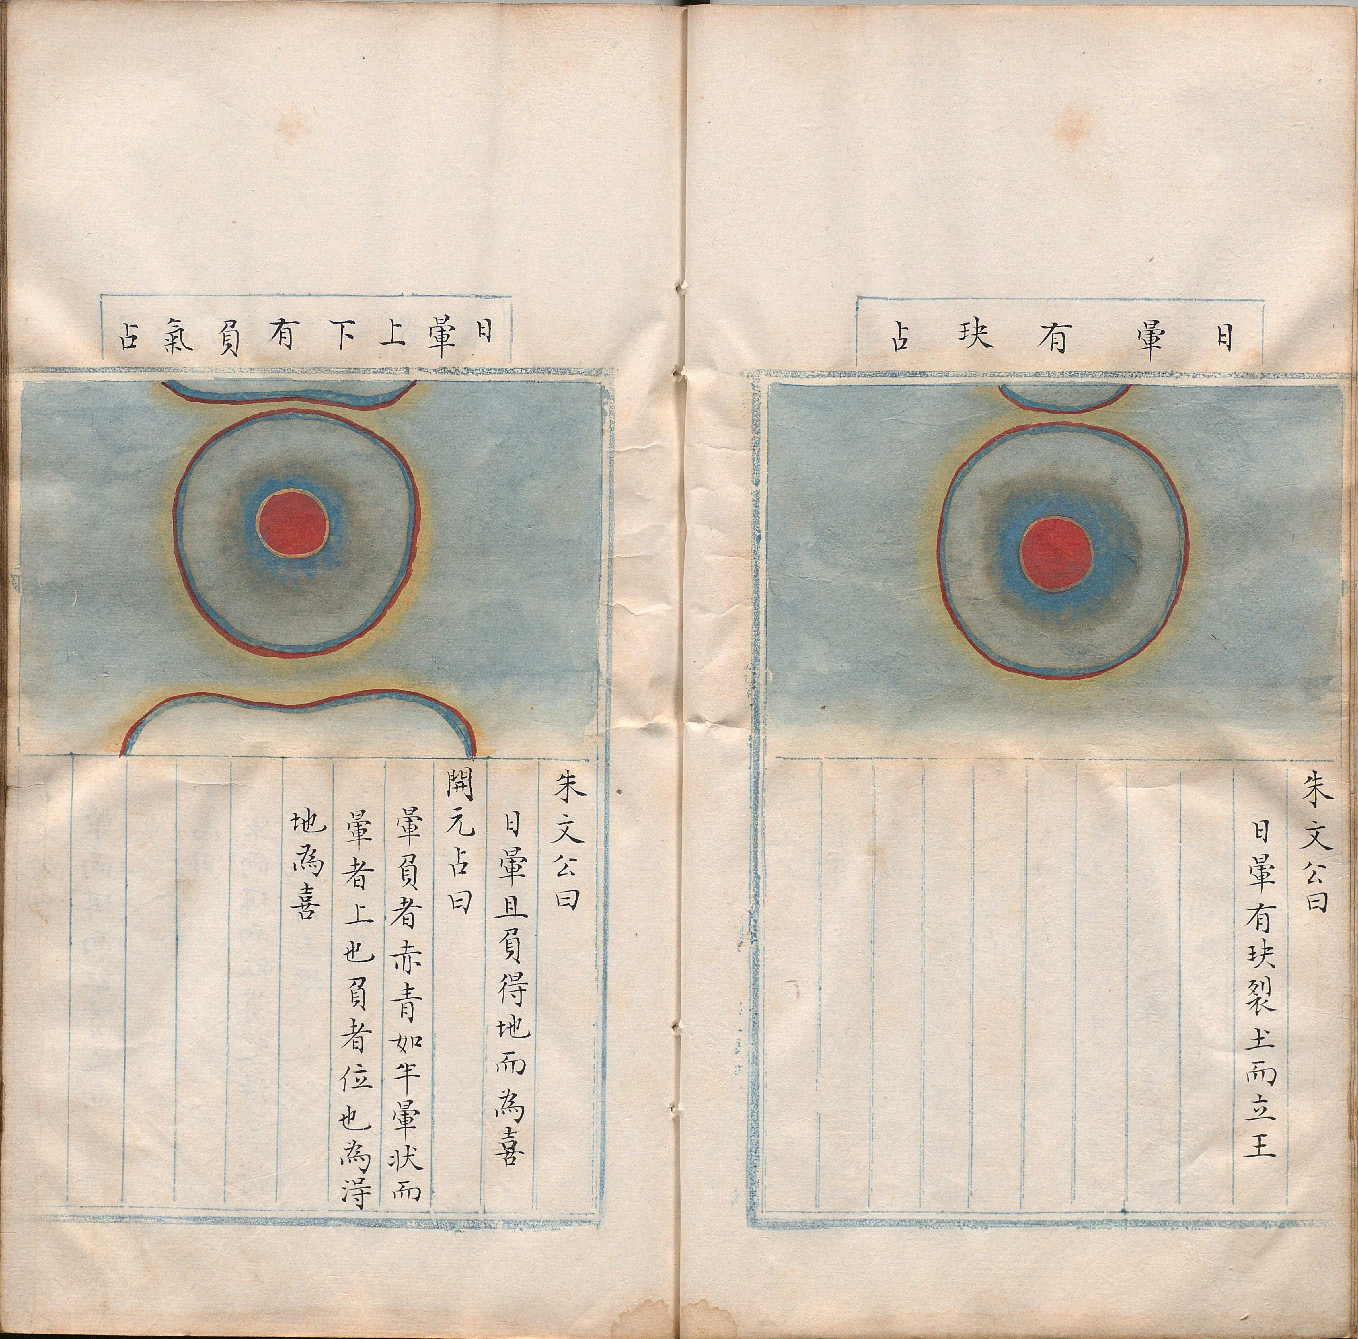 日暈有玦占
朱文公曰
日暈有玦裂土而立王
日暈上下有負氣占
朱文公曰
日暈且負得地而為喜
開元占曰
暈負者赤青如半暈狀而
暈者上也負者位也為淂
地為喜